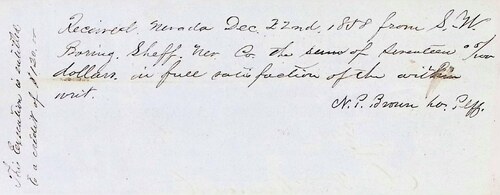 Received, Nevada Dec. 22nd, 1858 from S. W.
Boring, Sheff, Nev. Co. the sum of Seventeen 00/100
dollars, in full satisfaction of the within
writ.
N. P. Brown Plff.
This Execution is entitled
to a credit of